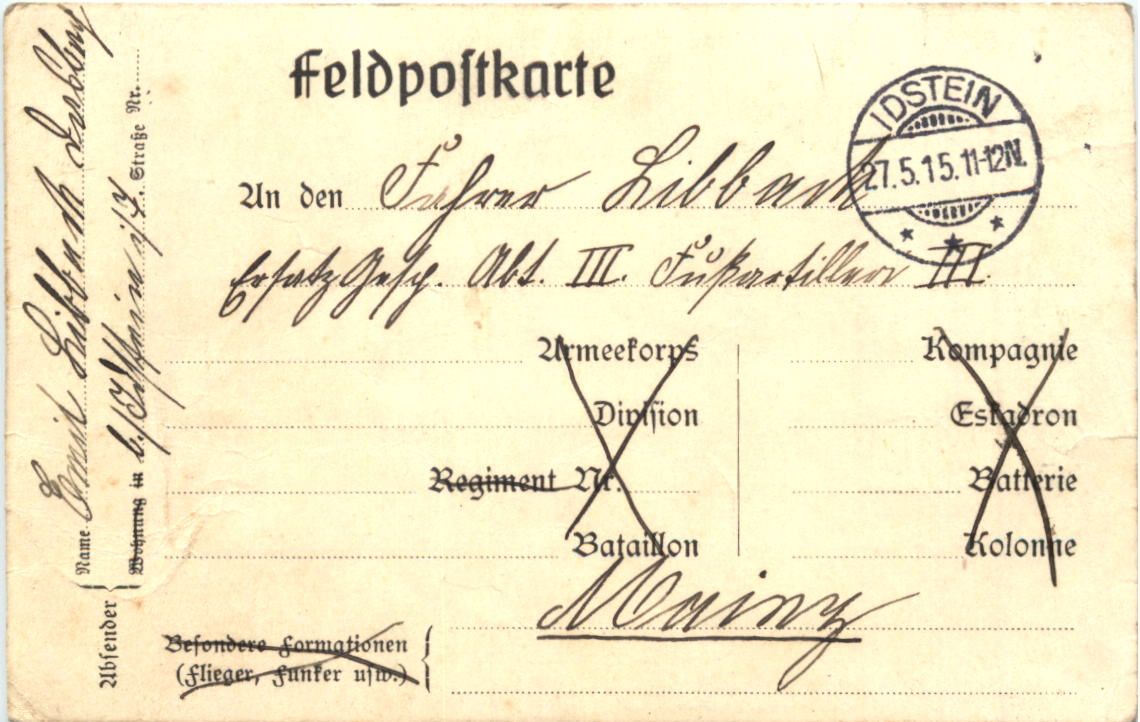 Feldpostkarte
IDSTEIN
27.5.15.11-12N.
An den Fahrer Libbach
Ersatz Gesch. Abt. III. Fußartillerie III.
Armeekorps
Kompagnie
Division
Eskadron
Regiment Nr.
Batterie
Bataillon
Kolonne
Mainz
Besondere Formationen
(Flieger, Funker usw.)
Absender
Name Emil Libbach
Wohnung in b/Idstein i/T. Straße Nr.